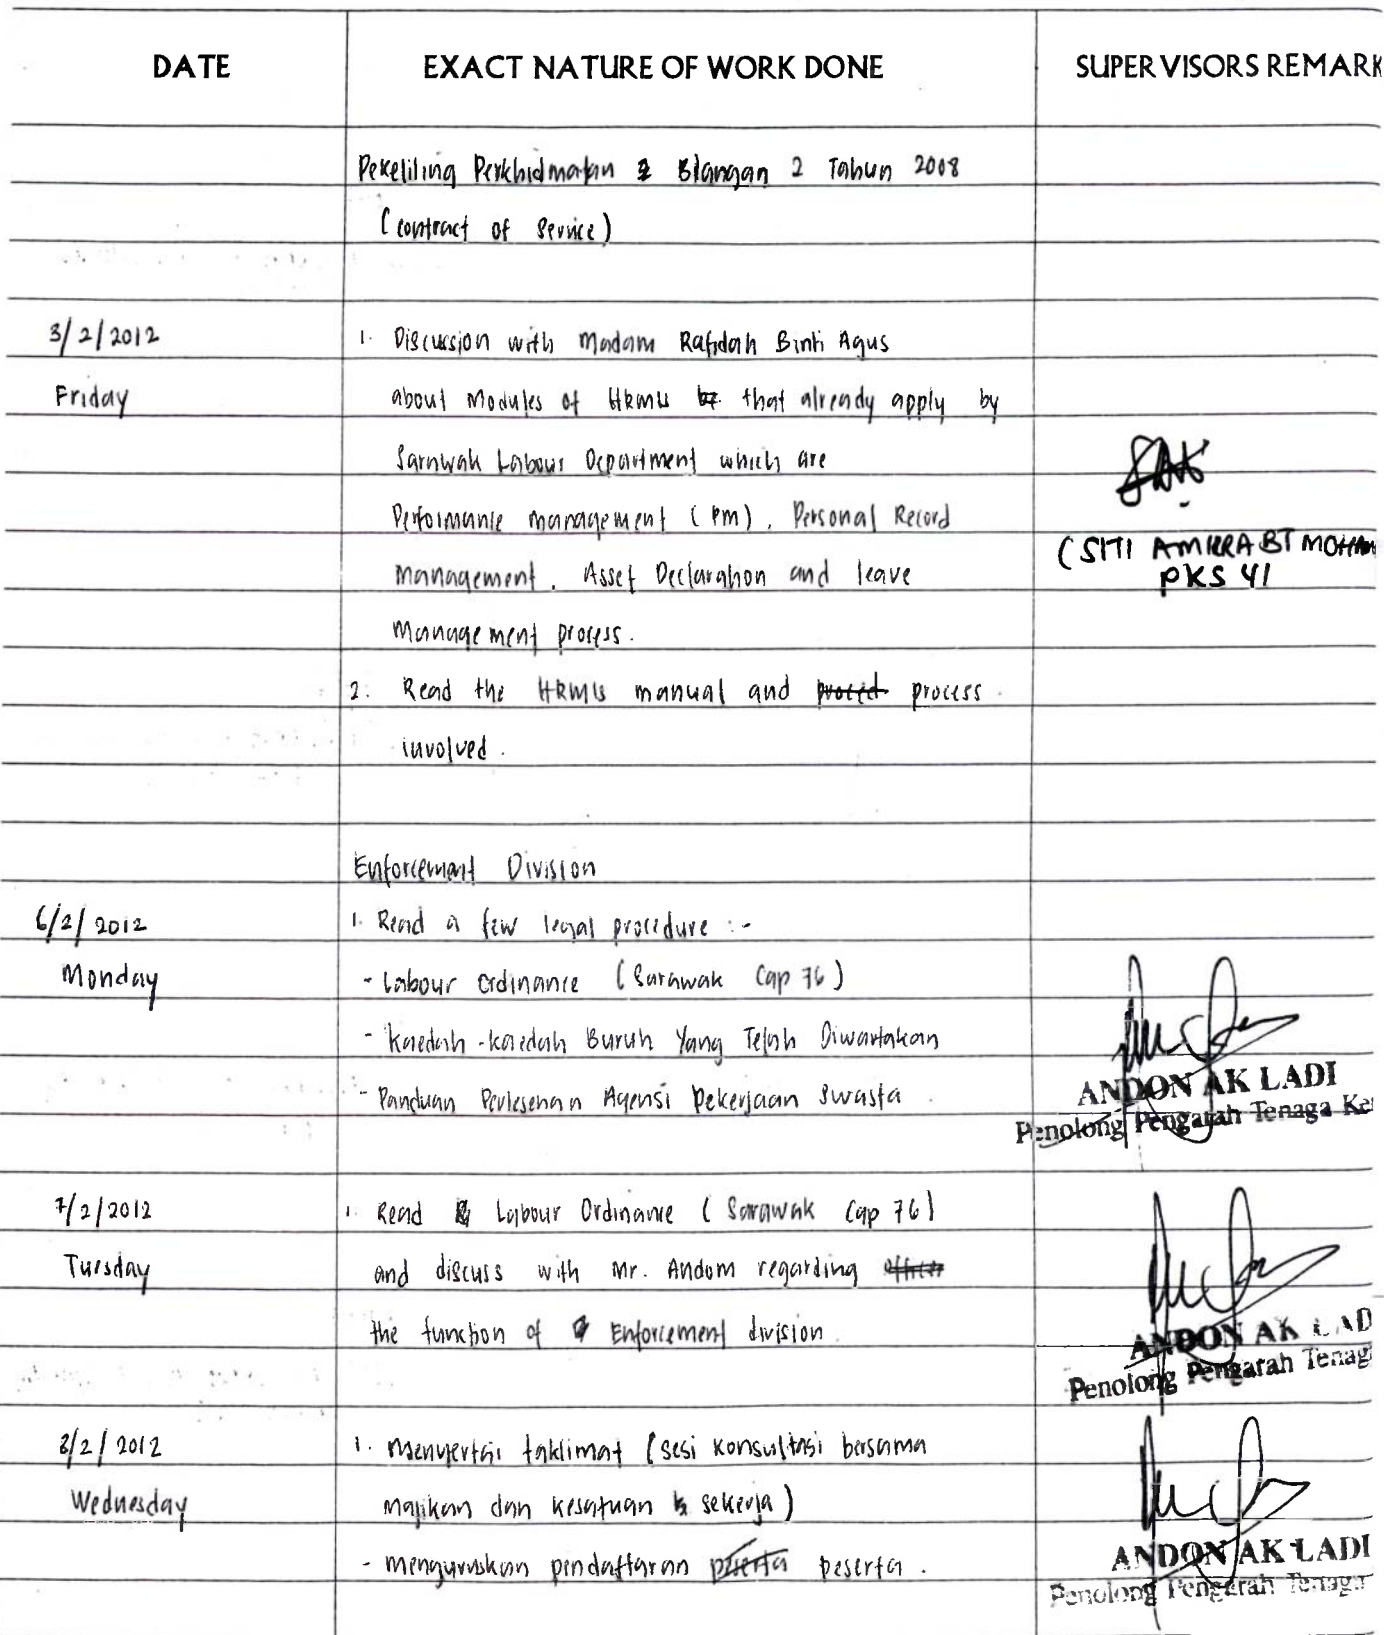 DATE EXACT NATURE OF WORK DONE SUPERVISORS REMARK
Pekeliling Perkhidmatan Blangan 2 Tahun 2008
(contract of Service)
3/2/2012 1. Discussion with Madam Rafidah Binti Agus
Friday about Modules of HRMIS that already apply by
Sarawak Labour Department which are
Performance management (PM), Personal Record
(SITI AMIRRA BT MOHAM
management, Asset Declaration and leave
PKS 41
Management process.
2. Read the HRMIS manual and process
involved.
Enforcement Division
6/2/2012 1. Read a few legal procedure :-
Monday - Labour Ordinance (Sarawak Cap 76)
- Kaedah-kaedah Buruh Yang Telah Diwartakan
- Panduan Perlesenan Agensi Pekerjaan Swasta.
ANDON AK LADI
Penolong Pengarah Tenaga Ke
7/2/2012 1. Read Labour Ordinance (Sarawak Cap 76)
Tuesday and discuss with Mr. Andom regarding
the function of Enforcement division.
ANDON AK LAD
Penolong Pengarah Tenag
8/2/2012 1. Menyertai taklimat (sesi konsultasi bersama
Wednesday majikan dan kesatuan sekerja)
- menguruskan pendaftaran peserta.
ANDON AK LADI
Penolong Pengarah Tenaga